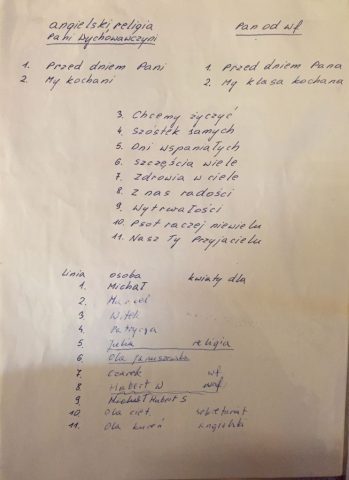 angielski, religia Pan od wf
Pani Wychowawczyni
1. Przed dniem Pani 1. Przed dniem Pana
2. My kochani 2. My klasa kochana
3. Chcemy życzyć
4. Szóstek samych
5. Dni wspaniałych
6. Szczęścia wiele
7. Zdrowia w ciele
8. Z nas radości
9. Wytrwałości
10. Psot raczej niewielu
11. Nasz Ty Przyjacielu
Linia osoba kwiaty dla
1. Michał
2. Marcel
3. Witek
4. Patrycja
5. Julia religia
6. Ola Januszewska
7. Czarek wf
8 Hubert W
9. Michał Hubert S
10. Ola sekretariat
11. Ola angielski